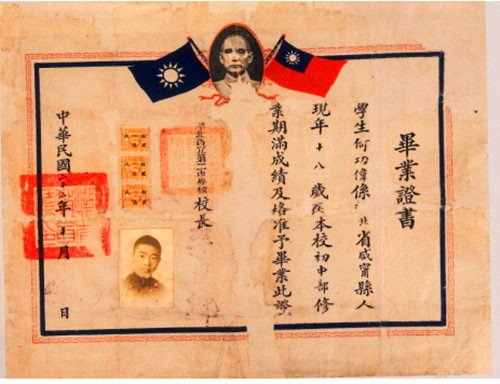 畢業證書
學生何功偉係北省咸甯縣人
現年十八歲在本校初中部修
業期滿成績及格准予畢業此證
校長
中華民國年十月 日